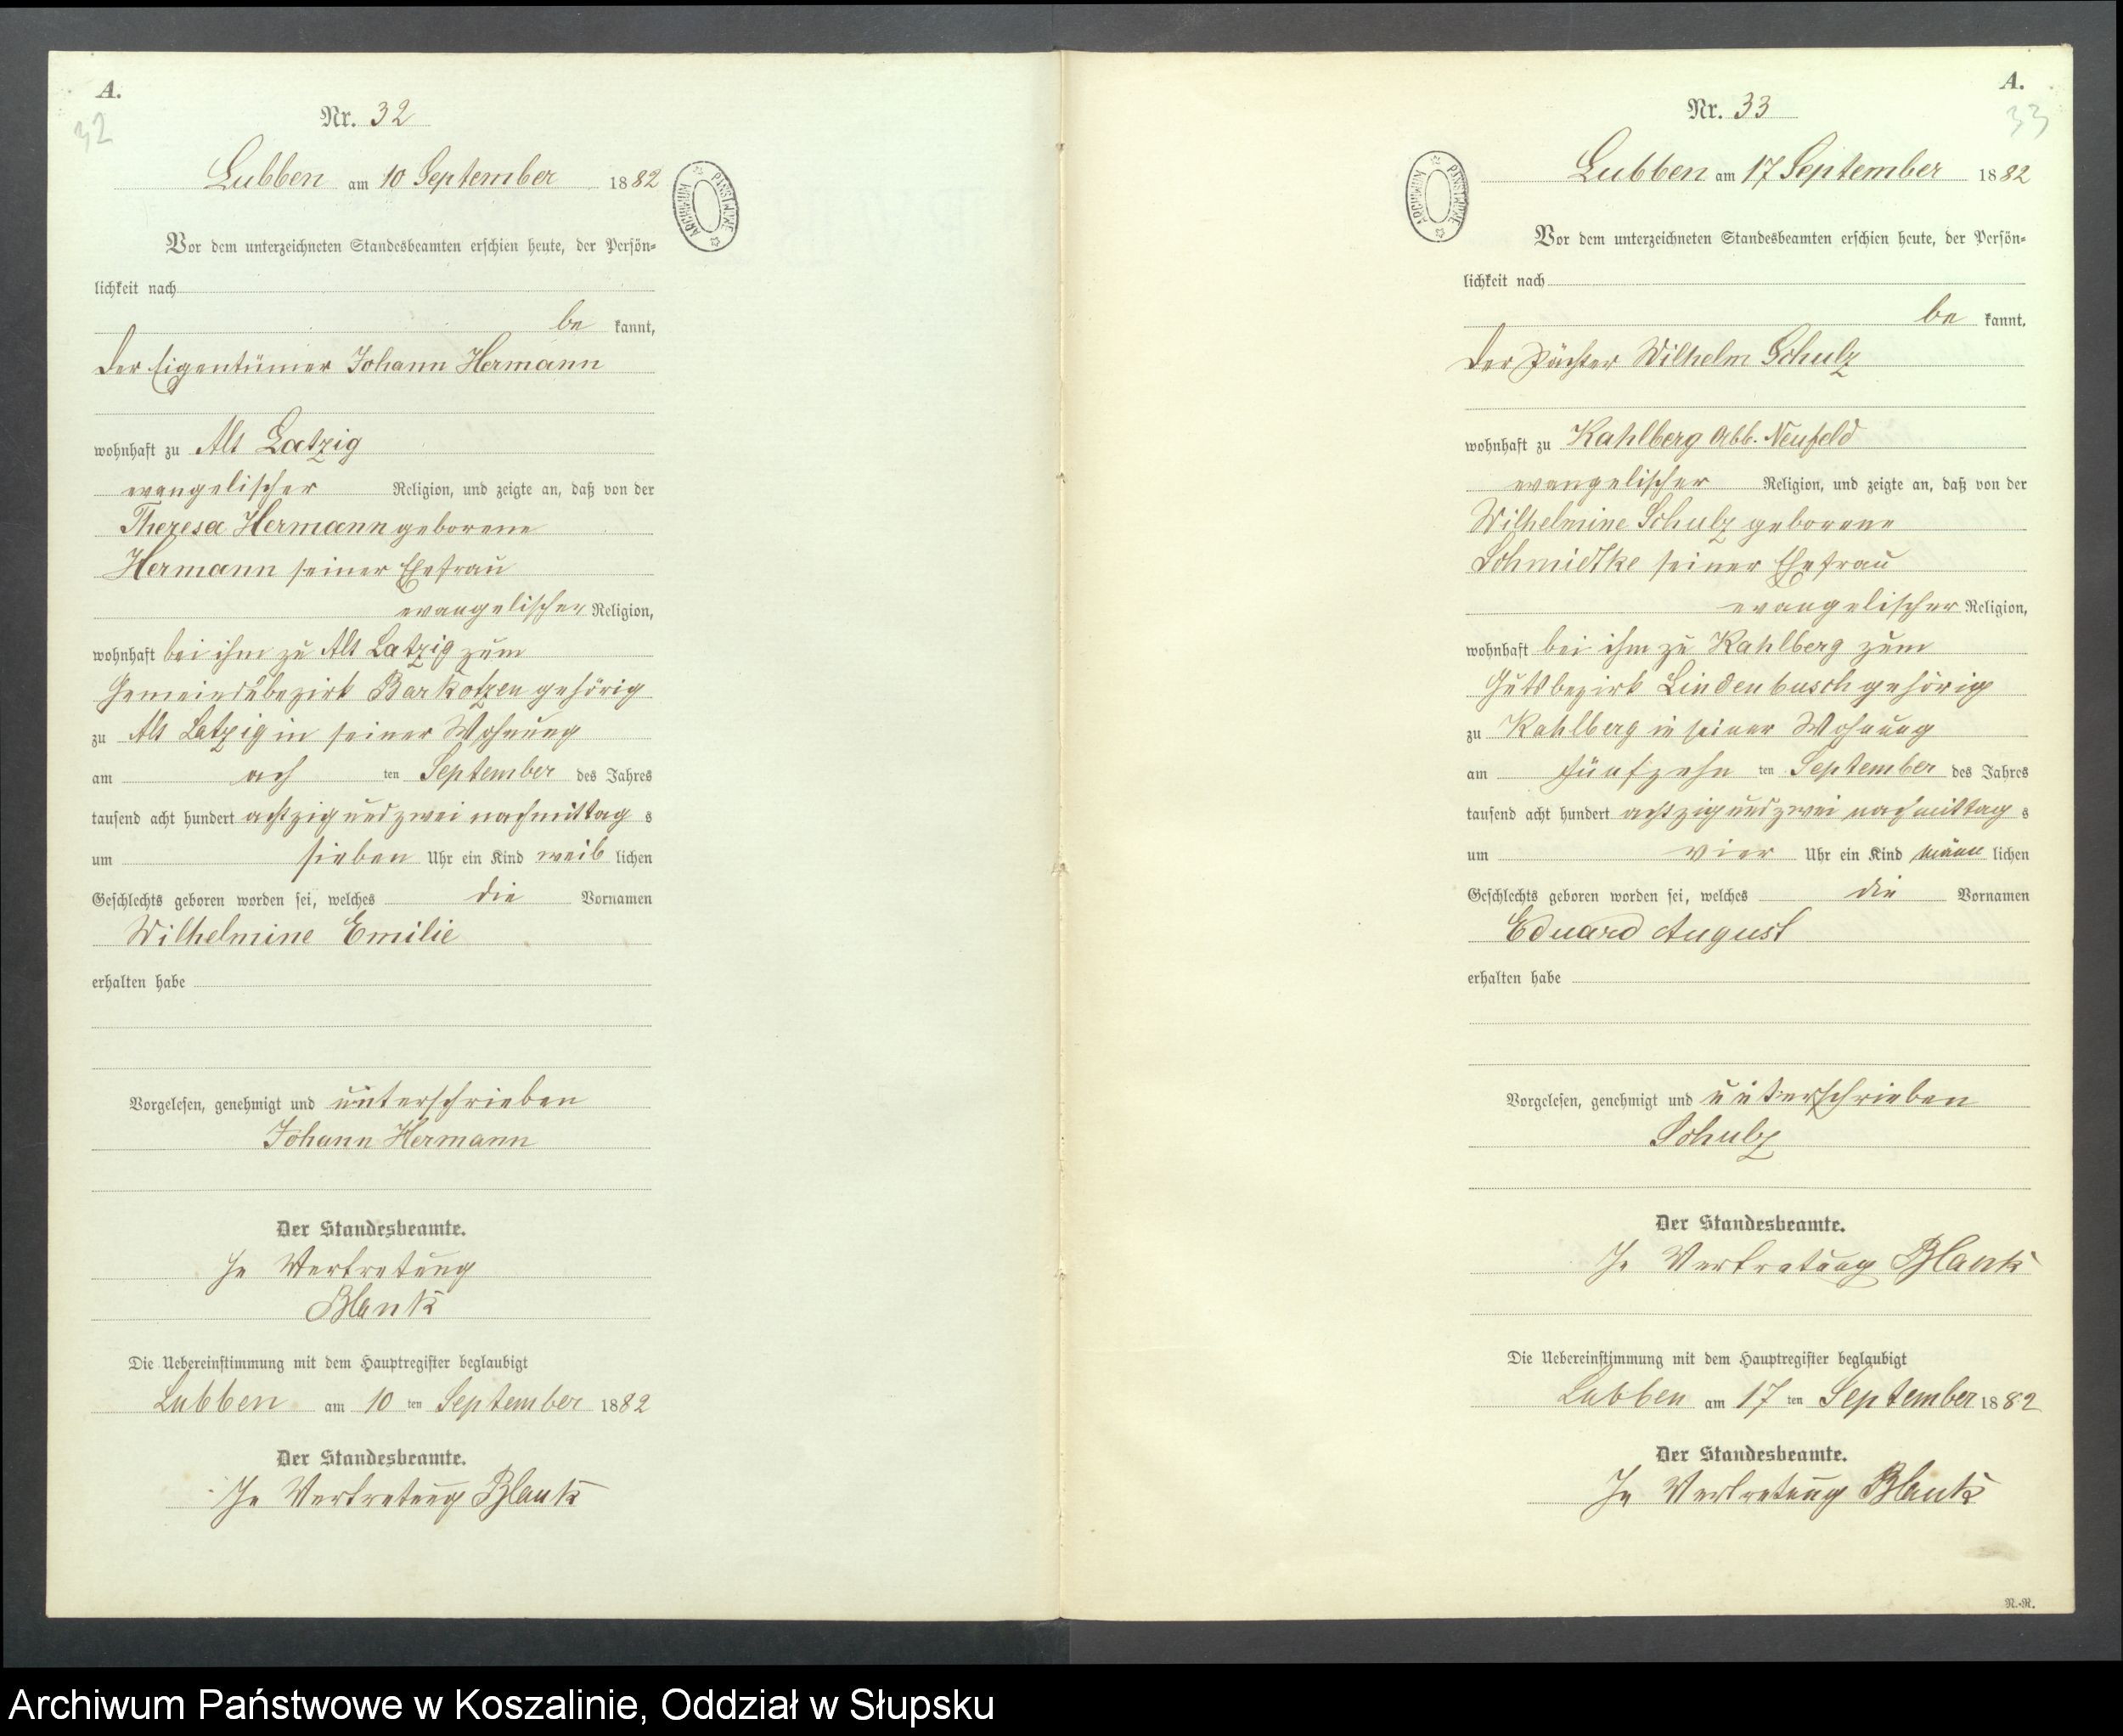 A.
32
Nr. 32
Lubben am 10 September 1882
ARCHIWUM PAŃSTWOWE
Vor dem unterzeichneten Standesbeamten erschien heute, der Persön=
lichkeit nach
be kannt,
der Eigentümer Johann Hermann
wohnhaft zu Alt Latzig
evangelischer Religion, und zeigte an, daß von der
Theresa Hermann geborene
Hermann seiner Ehefrau
evangelischer Religion,
wohnhaft bei ihm zu Alt Latzig zum
Gemeindebezirk Barkotzen gehörig
zu Alt Latzig in seiner Wohnung
am ach ten September des Jahres
tausend acht hundert achtzig und zwei nachmittag s
um sieben Uhr ein Kind weib lichen
Geschlechts geboren worden sei, welches die Vornamen
Wilhelmine Emilie
erhalten habe
Vorgelesen, genehmigt und unterschrieben
Johann Hermann
Der Standesbeamte.
In Vertretung
Blank
Die Uebereinstimmung mit dem Hauptregister beglaubigt
Lubben am 10 ten September 1882
Der Standesbeamte.
In Vertretung Blank
A.
33
Nr. 33
Lubben am 17 September 1882
ARCHIWUM PAŃSTWOWE
Vor dem unterzeichneten Standesbeamten erschien heute, der Persön=
lichkeit nach
be kannt,
der Pächter Wilhelm Schulz
wohnhaft zu Kahlberg Abb. Neufeld
evangelischer Religion, und zeigte an, daß von der
Wilhelmine Schulz geborene
Schmidtke seiner Ehefrau
evangelischer Religion,
wohnhaft bei ihm zu Kahlberg zum
Gutsbezirk Lindenbusch gehörig
zu Kahlberg in seiner Wohnung
am fünfzehn ten September des Jahres
tausend acht hundert achtzig und zwei nachmittag s
um vier Uhr ein Kind männ lichen
Geschlechts geboren worden sei, welches die Vornamen
Eduard August
erhalten habe
Vorgelesen, genehmigt und unterschrieben
Schulz
Der Standesbeamte.
In Vertretung Blank
Die Uebereinstimmung mit dem Hauptregister beglaubigt
Lubben am 17 ten September 1882
Der Standesbeamte.
In Vertretung Blank
R.-R.
Archiwum Państwowe w Koszalinie, Oddział w Słupsku